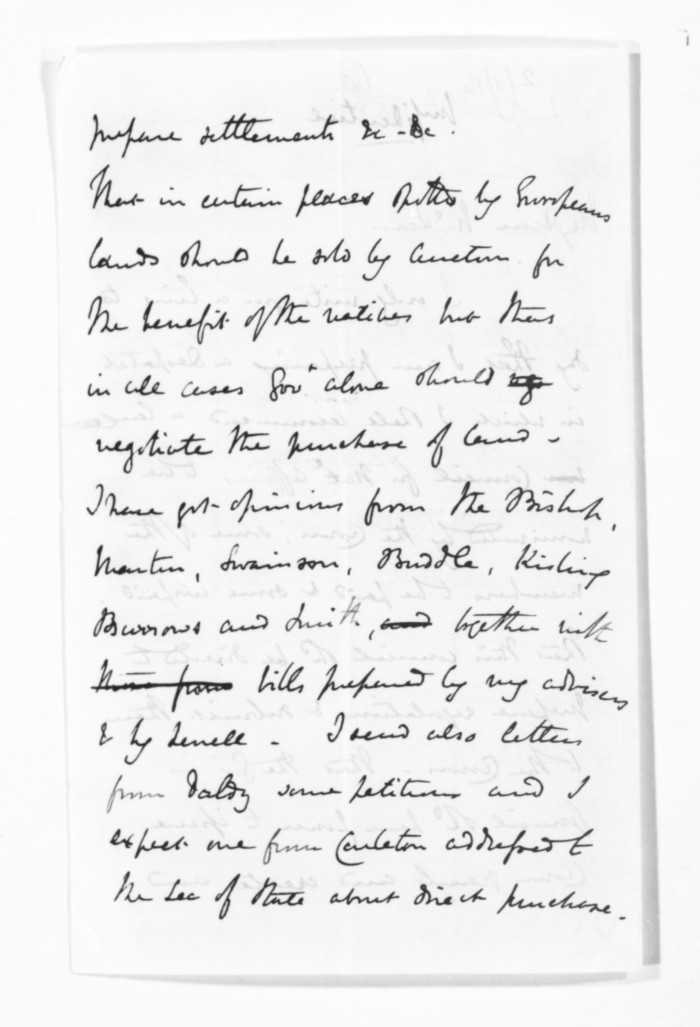 prepare settlements &c - &c.
That in certain places spotted by Europeans
lands should be sold by auction for
the benefit of the natives but that
in all cases Govt alone should
negotiate the purchase of land -
I have got opinions from the Bishop,
Martin, Swainson, Buddle, Kisling
Burrows and Smith, and together with
those from bills prepared by my advisers
& by Sewell - I send also letters
from Daldy some petitions and I
expect one from Carleton addressed to
the Sec of State about direct purchase.